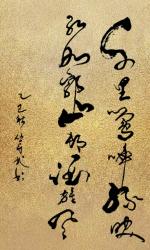 千里莺啼绿映
红水村山郭酒旗风
乙巳秋